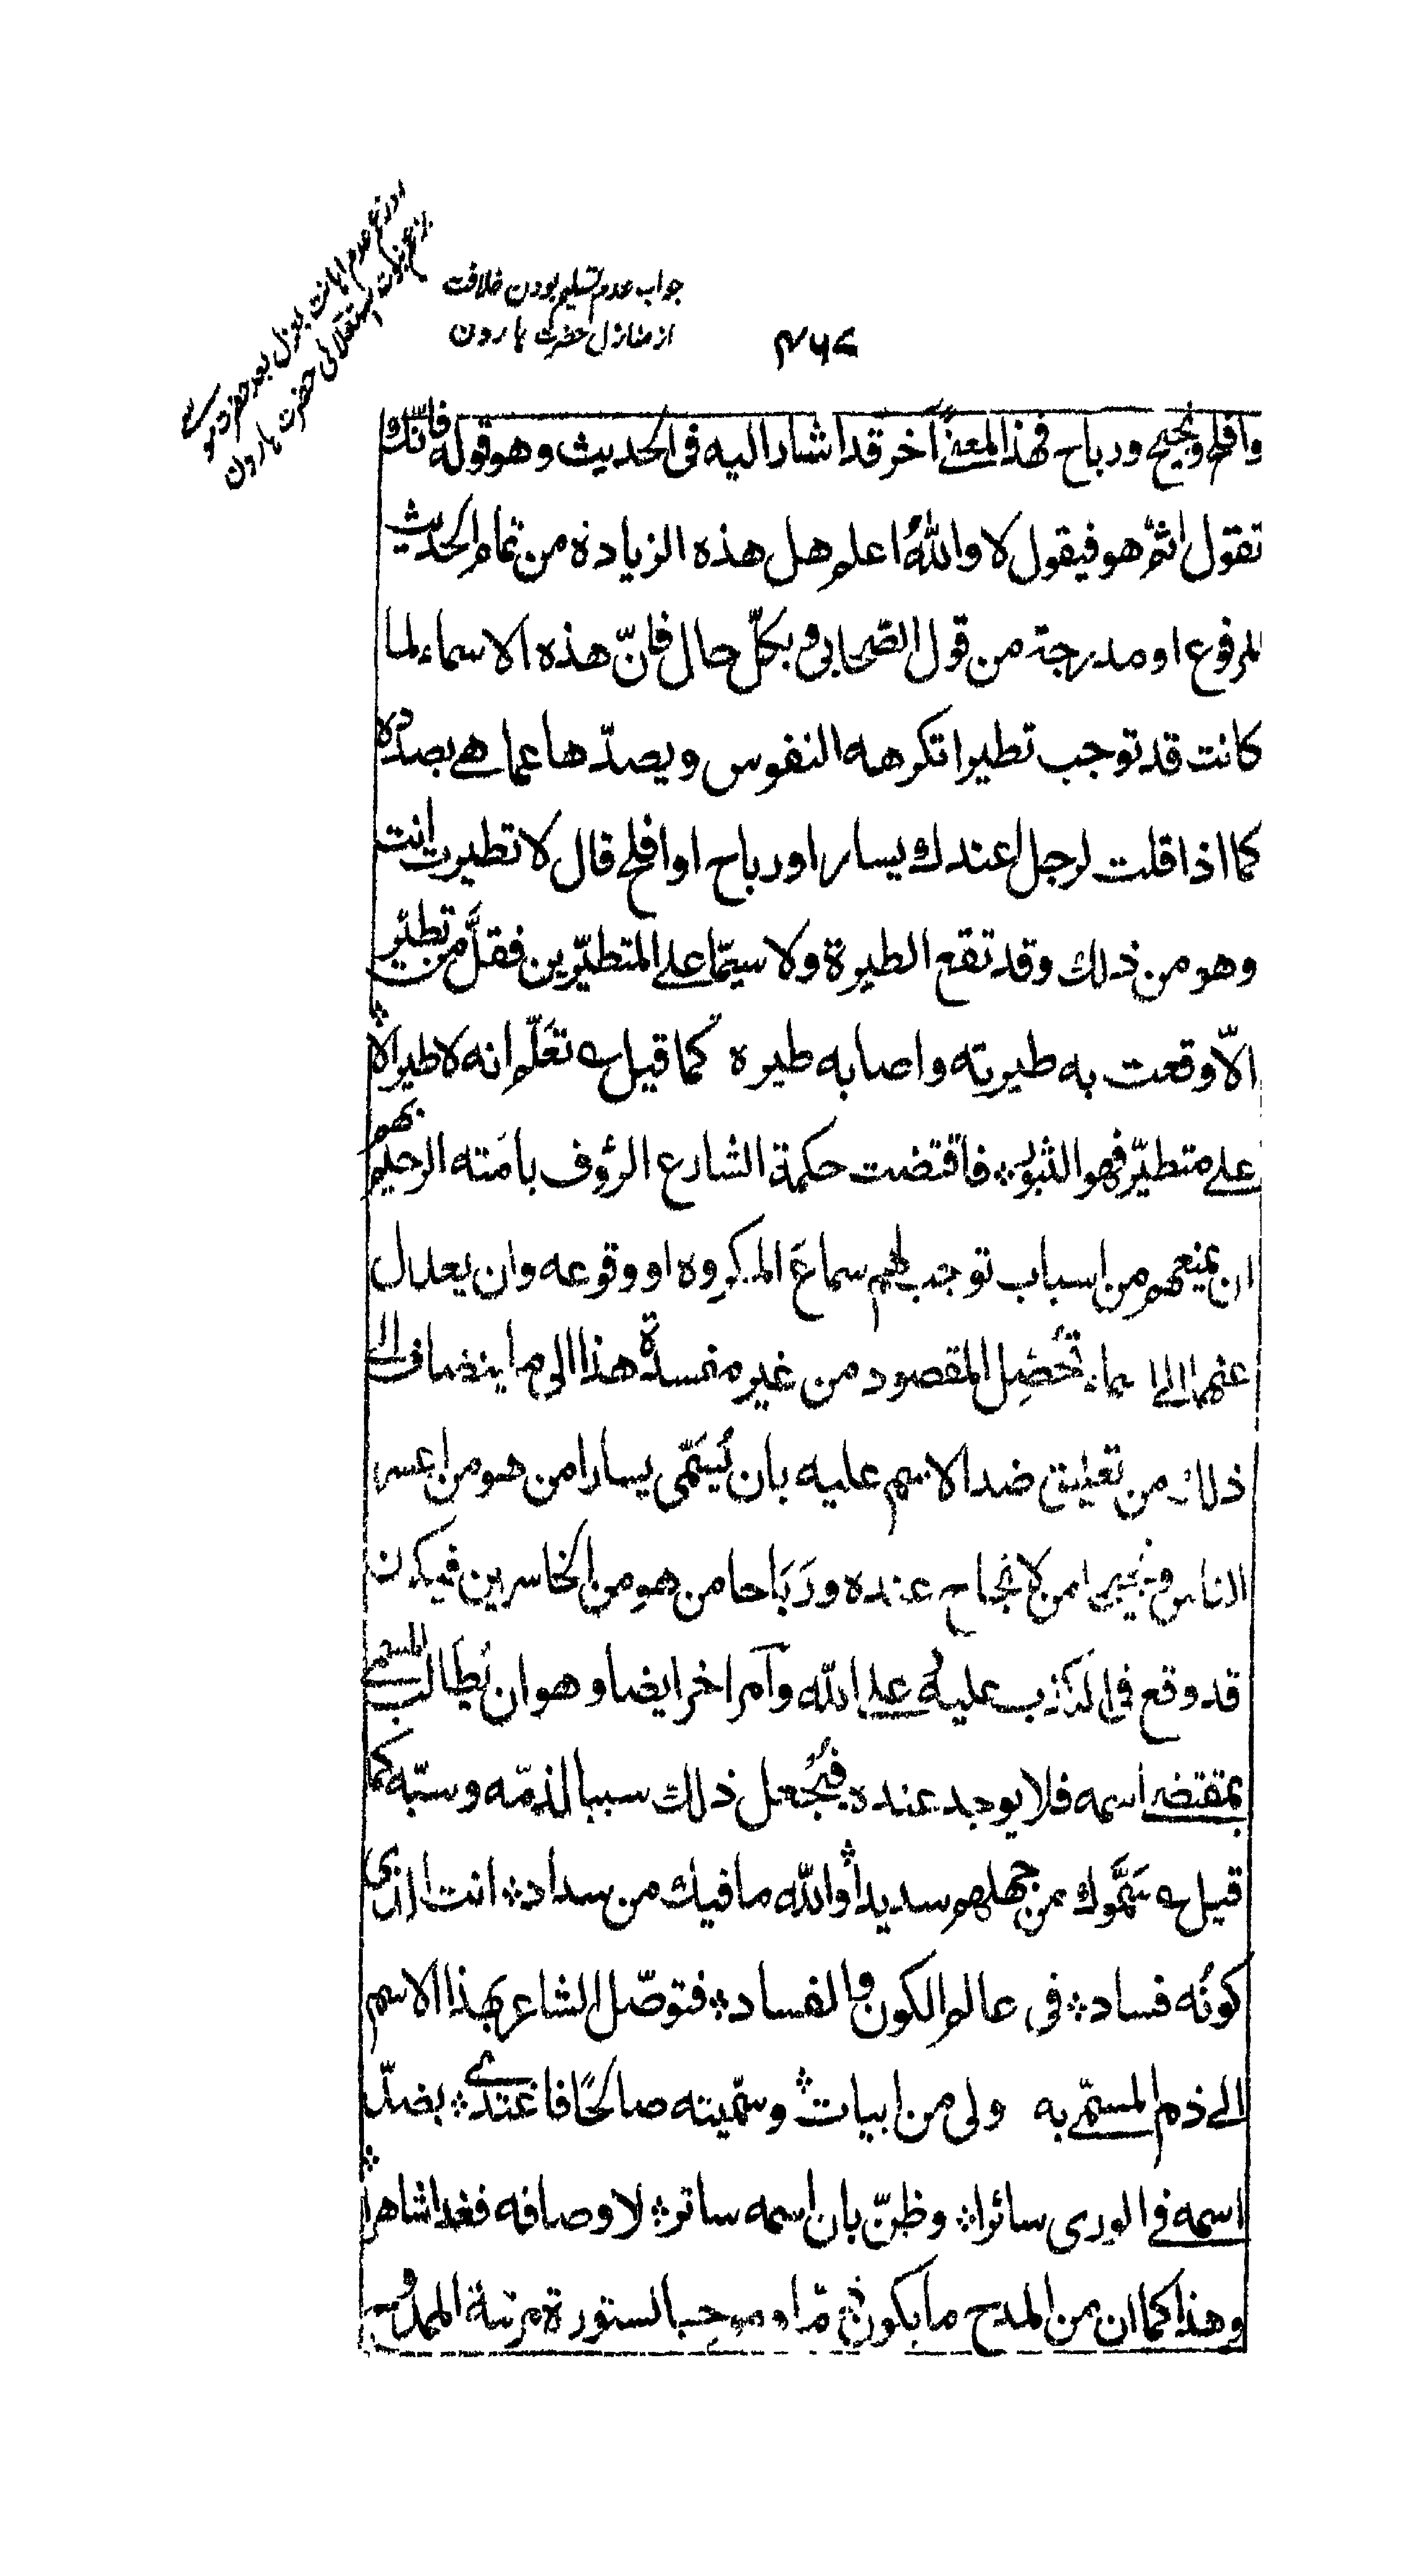 جواب عدم تسلیم بودن خلافت
از منازل حضرت هارون
۴۶۷
وافلح ونجيح ورباح فهذا المعنى آخر قد اشار اليه فى الحديث وهو قوله فانّك
تقول اثَمّ هو فيقول لا والله اعلم هل هذه الزيادة من تمام الحديث
المرفوع او مدرجة من قول الصّحابى وبكلّ حال فانّ هذه الاسماء لما
كانت قد توجب تطيرا تكرهه النفوس ويصدّها عما هى بصدده
كما اذا قلت لرجل اعندك يسار او رباح او افلح قال لا تطيرت انت
وهو من ذلك وقد تقع الطيرة ولا سيّما على المتطيّرين فقلّ من تطيّر
الّا وقعت به طيرته واصابه طيره كما قيل ؎ تعَلّم انه لا طير الا
على متطيّر فهو الثبور ؞ فاقتضت حكمة الشارع الرؤف بامَته الرحيم بهم
ان يمنعهم من اسباب توجب لهم سماعَ المكروه او وقوعه وان يعدل
عنها الى اسماء تُحَصِّل المقصود من غير مفسدة هذا الى ما ينضاف الى
ذلك من تعليق ضد الاسم عليه بان يُسَمّى يسارا من هو من اعسر
الناس ونجيحا من لا نجاح عنده ورَبَاحا من هو من الخاسرين فيكون
قد وقع فى الكذب عليه وعلى الله وآمر اخر ايضا وهو ان يُطَالَب المسمى
بمقتضى اسمه فلا يوجد عنده فيُجعل ذلك سببا لذمّه وسبّه كما
قيل ؎ سَمَّوك من جهلهم سديداً ؞ والله ما فيك من سداد ؞ انت الذى
كونُه فساد ؞ فى عالم الكون والفساد ؞ فتوصّل الشاعر بهذا الاسم
الى ذم المسمّى به ولى من ابيات ؞ وسمّيته صالحًا فاغتدى ؞ بضدّ
اسمه فى الورى سائرا ؞ وظنّ بان اسمه ساتر ؞ لاوصافه فغدا شاهرا ؞
وهذا كما ان من المدح ما يكون ذمّا وموجبا لسقوط مرتبة الممدوح